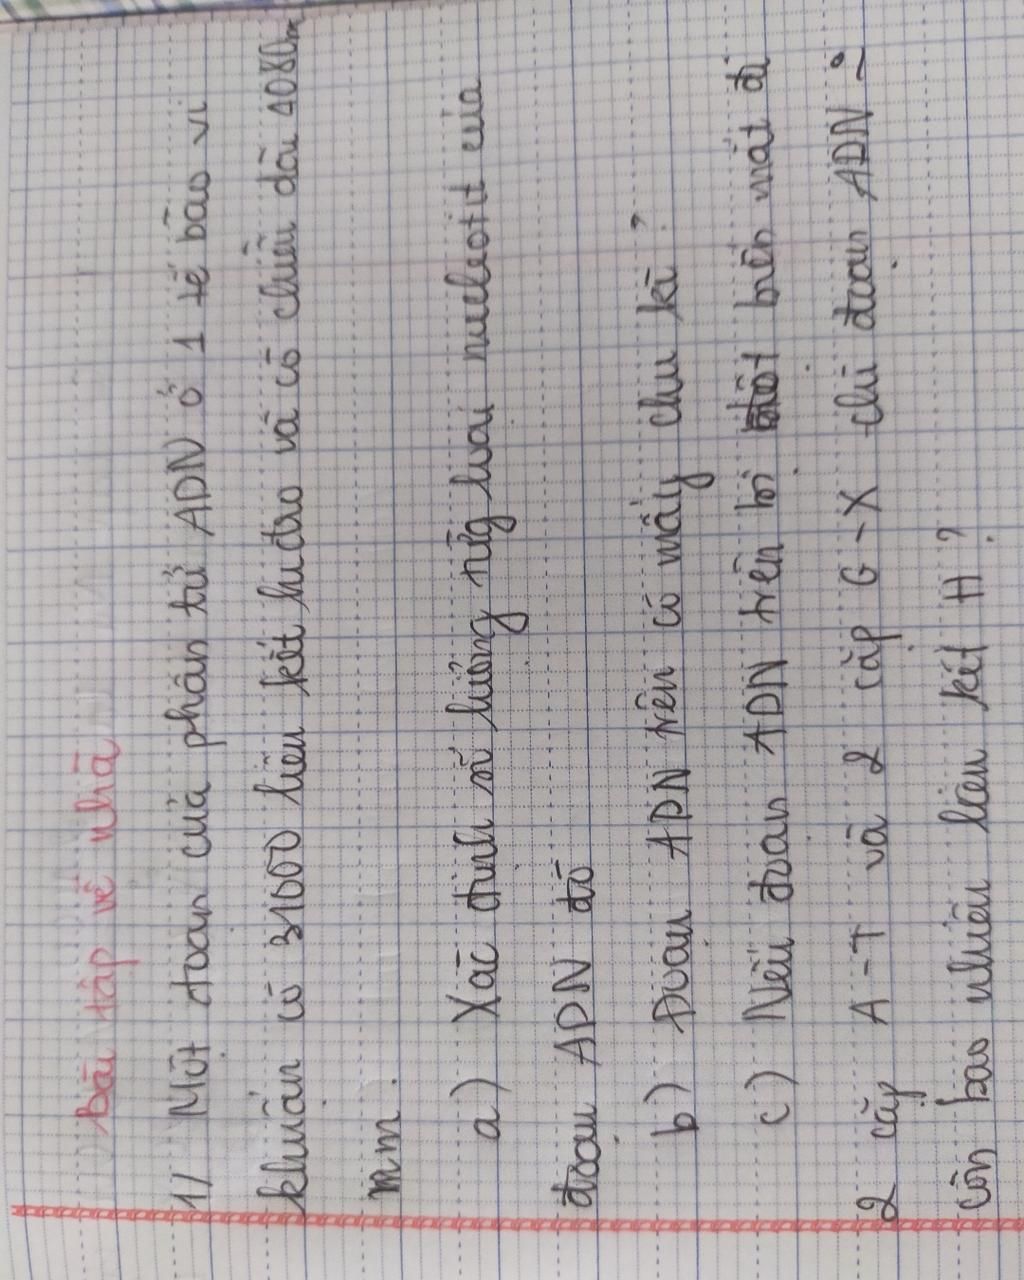 Bài tập về nhà
1/ Một đoạn của phân tử ADN ở 1 tế bào vi
khuẩn có 31600 liên kết hiđro và có chiều dài 4080n
mm.
a) Xác định số lượng từng loại nucleotit của
đoạn ADN đó
b) Đoạn ADN trên có mấy chu kì?
c) Nếu đoạn ADN trên bị biến mất đi
2 cặp A-T và 2 cặp G-X thì đoạn ADN
còn bao nhiêu liên kết H?